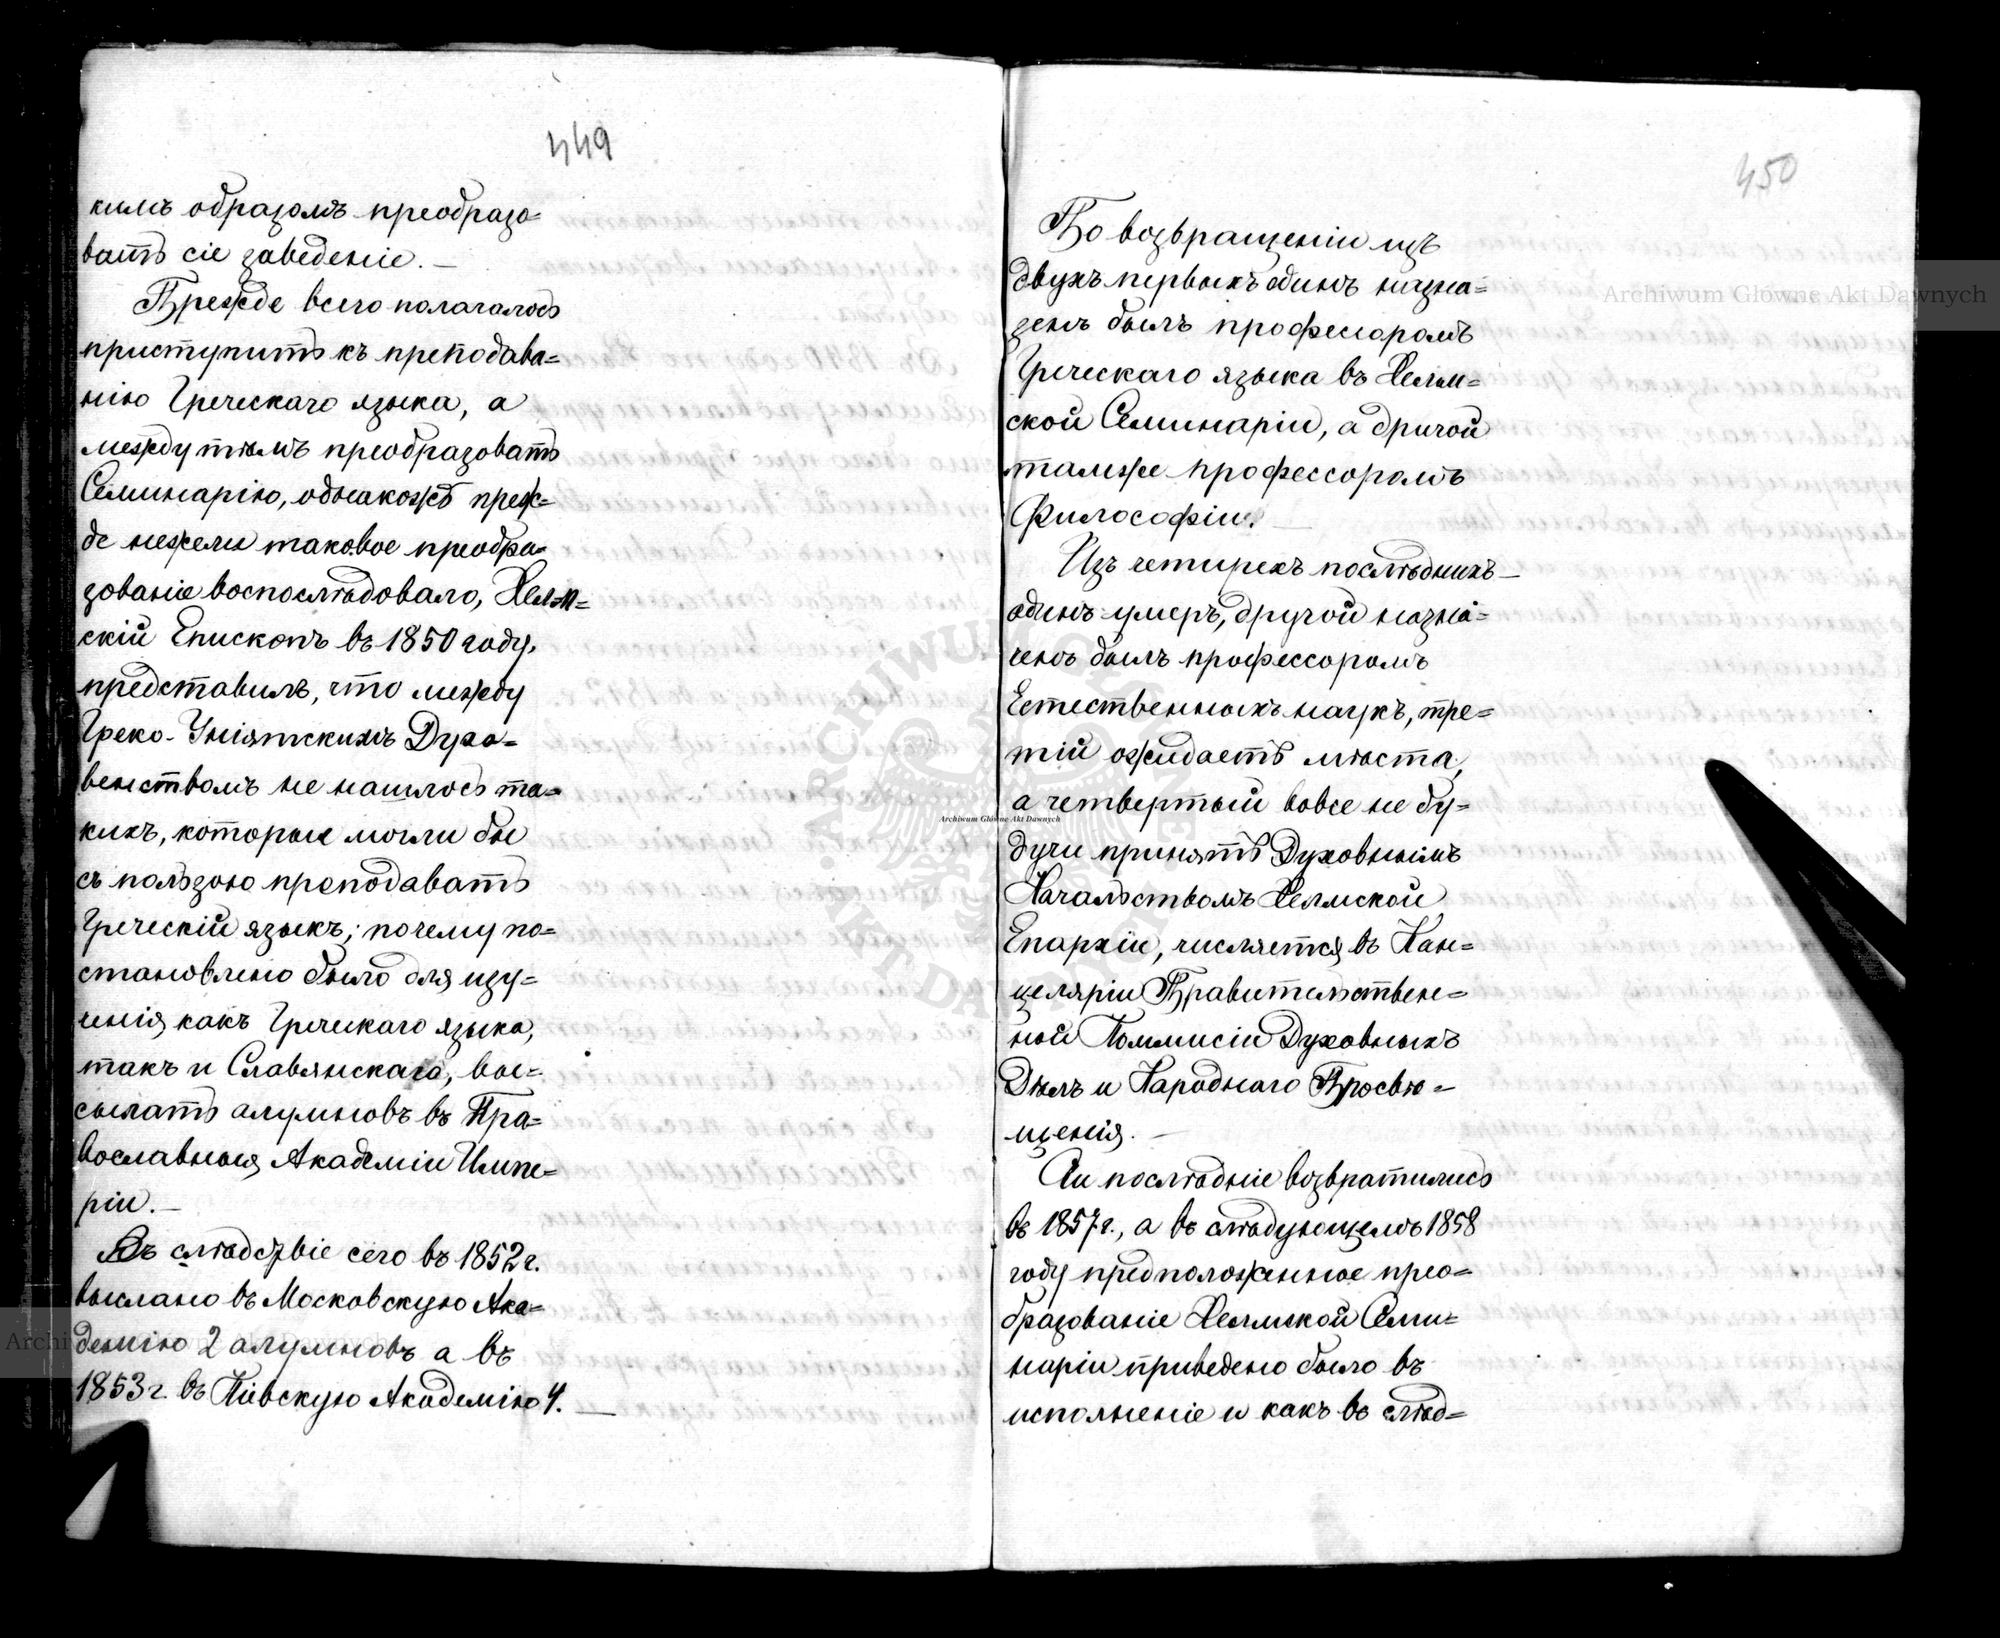 449
кимъ образомъ преобразо=
вать сіе заведеніе. —
Прежде всего полагалось
приступить къ преподава=
нію Греческаго языка, а
между тѣмъ преобразовать
Семинарію, однакожъ преж=
де нежели таковое преобра=
зованіе воспослѣдовало, Хелм=
скій Епископъ въ 1850 году,
представилъ, что между
Греко-Уніятскимъ Духо=
венствомъ не нашлось та=
кихъ, которые могли бы
съ пользою преподавать
Греческій языкъ; почему по=
становлено было для изу=
ченія какъ Греческаго языка,
такъ и Славянскаго, вы=
сылать алумновъ въ Пра=
вославныя Академіи Импе=
ріи. —
Въ слѣдствіе сего въ 1852 г.
выслано въ Московскую Ака=
демію 2 алумновъ а въ
1853 г. въ Кіевскую Академію 4. —
450
По возвращеніи изъ
двухъ первыхъ одинъ назна=
ченъ былъ профессоромъ
Греческаго языка въ Хелм=
ской Семинаріи, а другой
тамже профессоромъ
Философіи. —
Изъ четырехъ послѣднихъ —
одинъ умеръ, другой назна=
ченъ былъ профессоромъ
Естественныхъ наукъ, тре=
тій ожидаетъ мѣста,
а четвертый вовсе не бу=
дучи принятъ Духовнымъ
Начальствомъ Хелмской
Епархіи, числяется въ Кан=
целяріи Правительствен=
ной Коммисіи Духовныхъ
Дѣлъ и Народнаго Просвѣ=
щенія. —
Сіи послѣдніе возвратились
въ 1857 г., а въ слѣдующемъ 1858
году предположенное прео=
бразованіе Хелмской Семи=
наріи приведено было въ
исполненіе и какъ въ слѣд=
Archiwum Główne Akt Dawnych
Archiwum Główne Akt Dawnych
Archiwum Główne Akt Dawnych